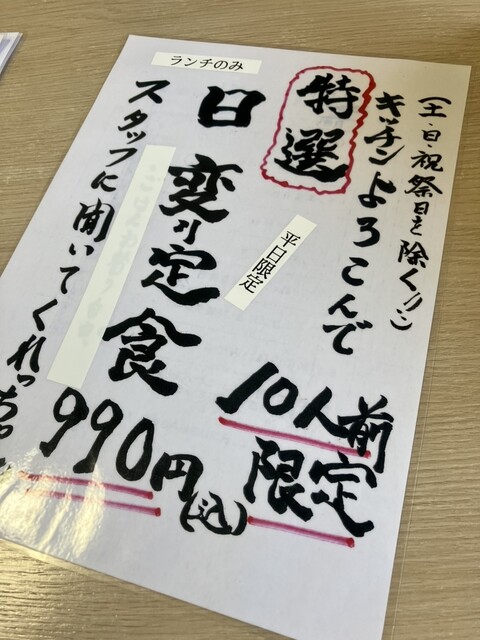 ランチのみ
(土・日・祝祭日を除く!!)
キッチンよろこんで
特選
日変り定食
平日限定
10人前
限定
990円(込)
スタッフに聞いてくれっ